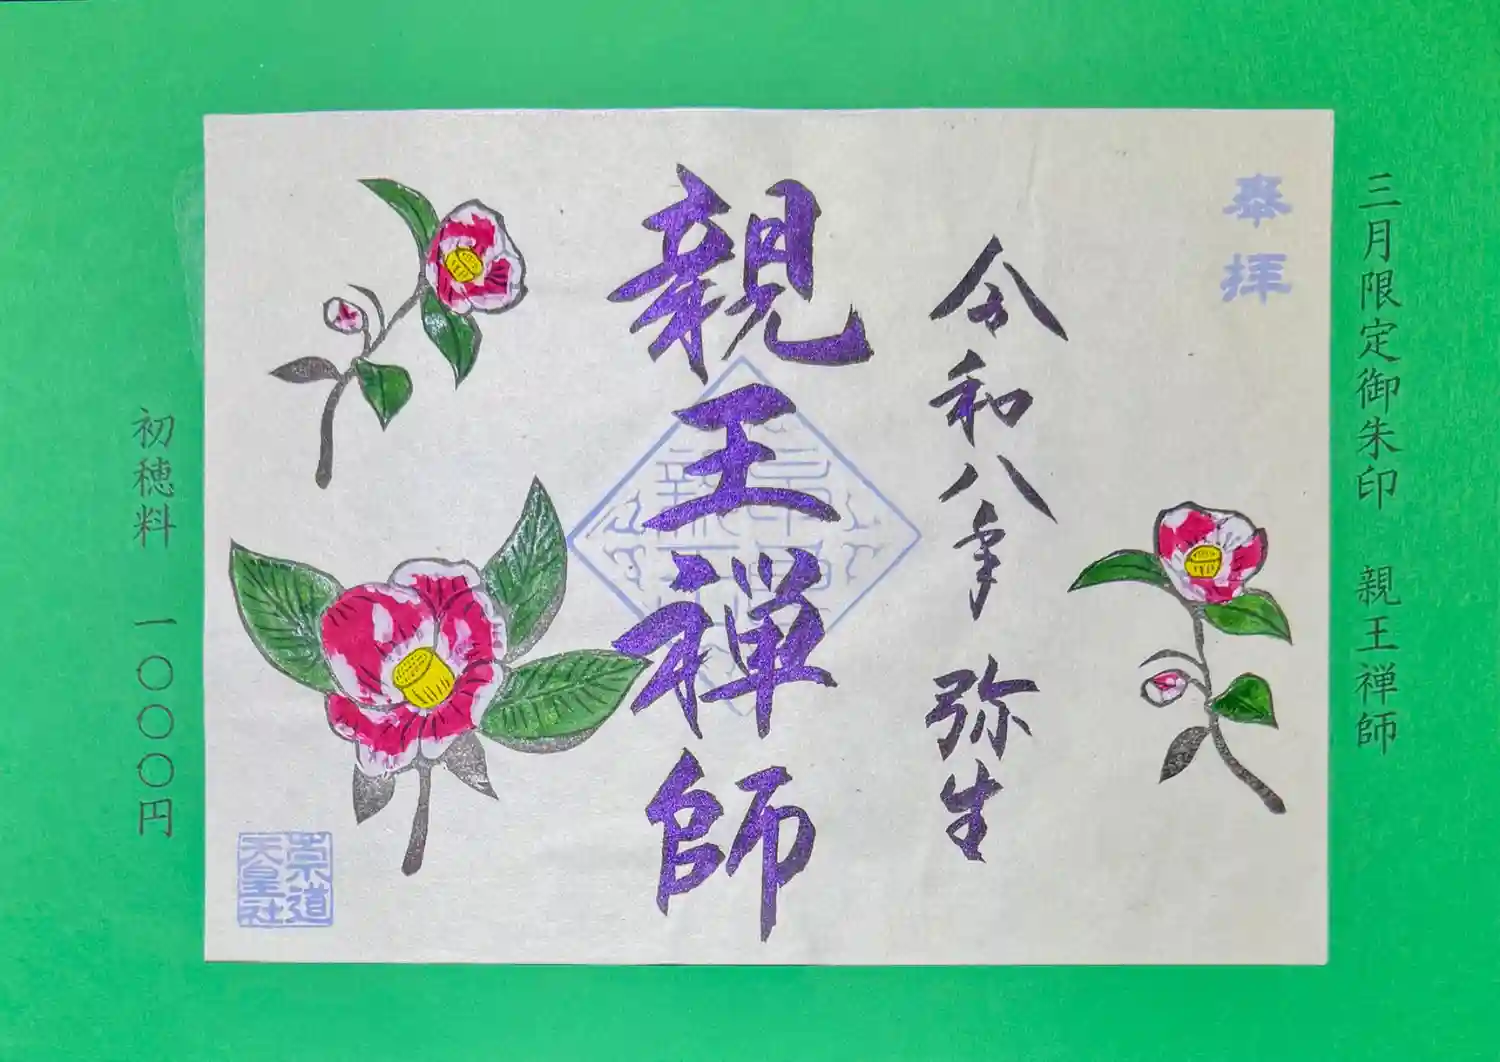 三月限定御朱印 親王禅師
奉拝
令和八年 弥生
親王禅師
崇道
天皇社
初穂料 一〇〇〇円